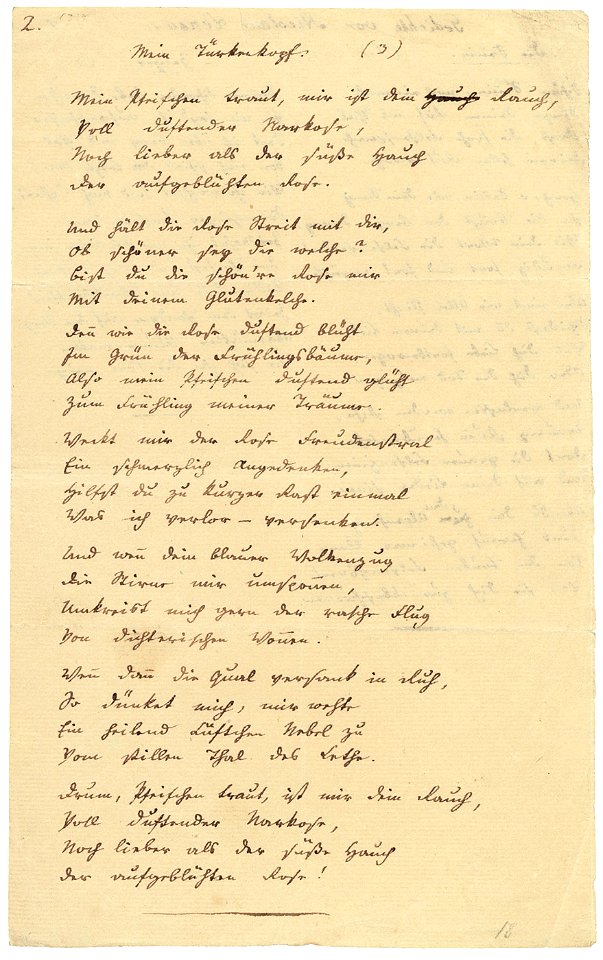 2.
Mein Türkenkopf. (3)
Mein Pfeifchen traut, mir ist dein Hauch Rauch,
Voll duftender Narkose,
Noch lieber als der süße Hauch
Der aufgeblühten Rose.
Und hält die Rose Streit mit dir,
Ob schöner sey die welche?
Bist du die schön're Rose mir
Mit deinem Glutenkelche.
Denn wie die Rose duftend blüht
Im Grün der Frühlingsbäume,
Also mein Pfeifchen duftend glüht
Zum Frühling meiner Träume.
Weckt mir der Rose Freudenstral
Ein schmerzlich Angedenken,
Hilfst du zu kurzer Rast einmal
Was ich verlor – versenken.
Und wenn dein blauer Wolkenzug
Die Stirne mir umsponnen,
Umkreist mich gern der rasche Flug
Von dichterischen Wonnen.
Wenn dann die Qual versank in Ruh,
So dünket mich, mir wehte
Ein heilend Lüftchen Nebel zu
Vom stillen Thal des Lethe.
Drum, Pfeifchen traut, ist mir dein Rauch,
Voll duftender Narkose,
Noch lieber als der süße Hauch
Der aufgeblühten Rose!
18